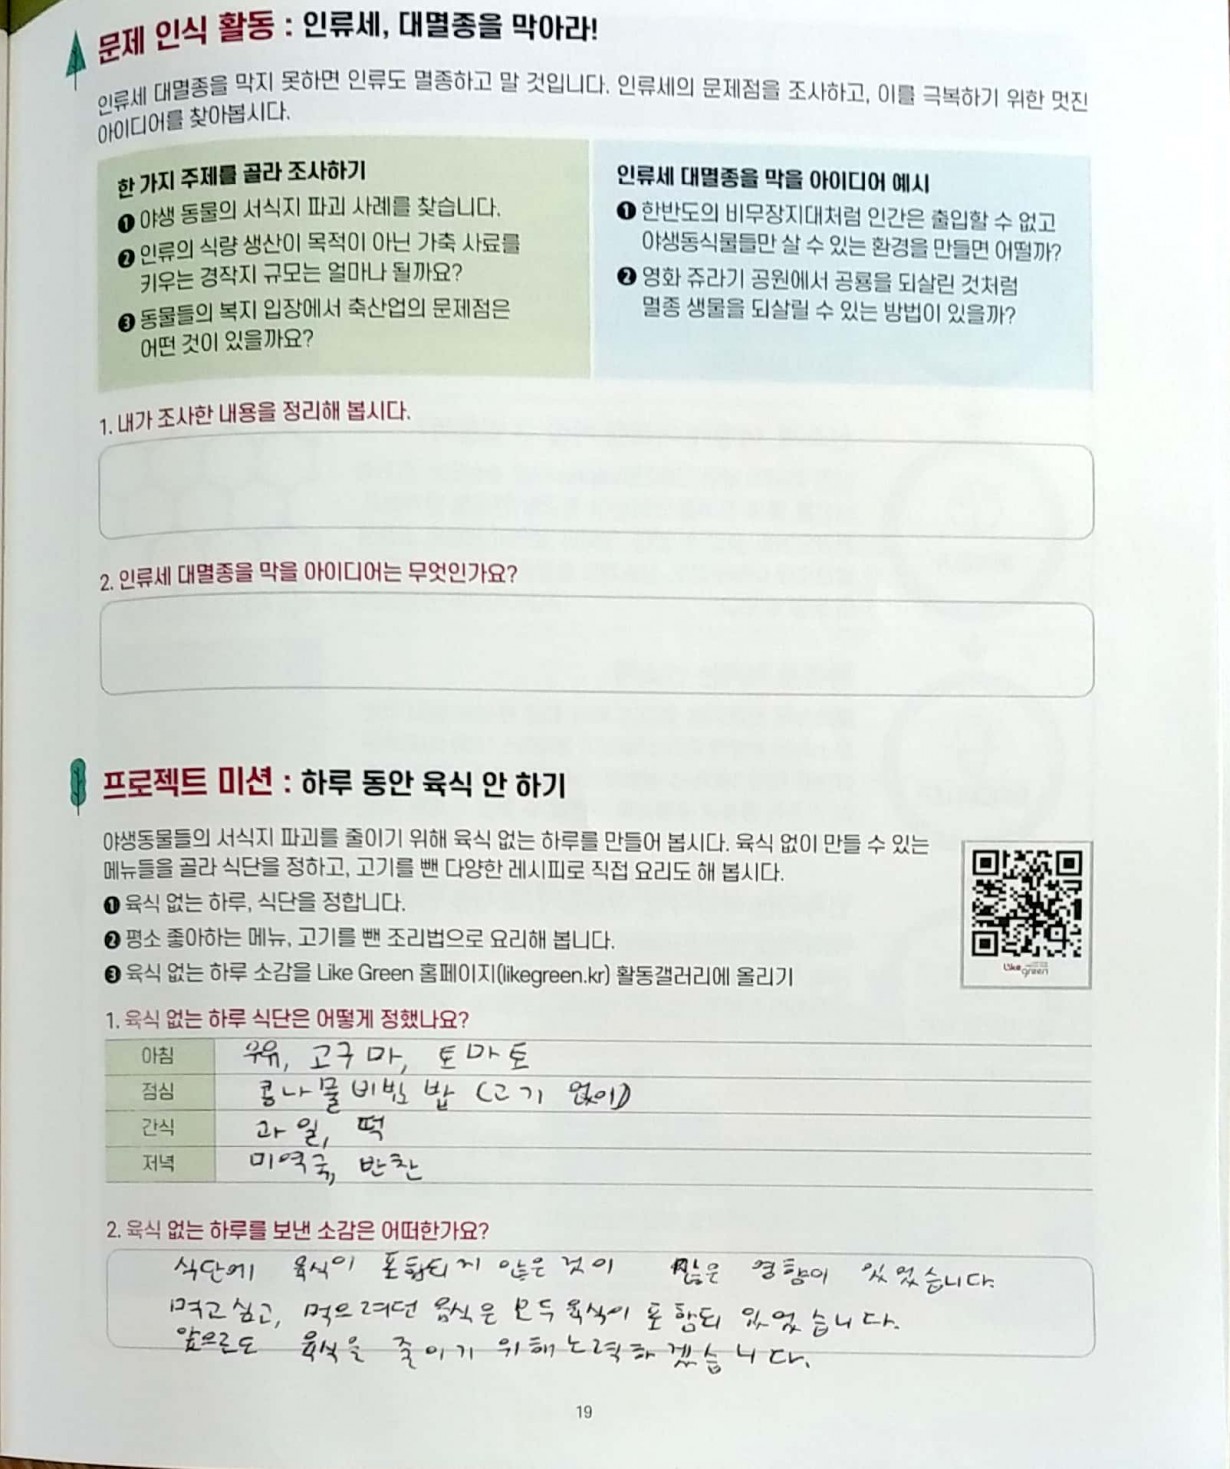 문제 인식 활동 : 인류세, 대멸종을 막아라!
인류세 대멸종을 막지 못하면 인류도 멸종하고 말 것입니다. 인류세의 문제점을 조사하고, 이를 극복하기 위한 멋진
아이디어를 찾아봅시다.
한 가지 주제를 골라 조사하기
❶ 야생 동물의 서식지 파괴 사례를 찾습니다.
❷ 인류의 식량 생산이 목적이 아닌 가축 사료를
키우는 경작지 규모는 얼마나 될까요?
❸ 동물들의 복지 입장에서 축산업의 문제점은
어떤 것이 있을까요?
인류세 대멸종을 막을 아이디어 예시
❶ 한반도의 비무장지대처럼 인간은 출입할 수 없고
야생동식물들만 살 수 있는 환경을 만들면 어떨까?
❷ 영화 쥬라기 공원에서 공룡을 되살린 것처럼
멸종 생물을 되살릴 수 있는 방법이 있을까?
1. 내가 조사한 내용을 정리해 봅시다.
2. 인류세 대멸종을 막을 아이디어는 무엇인가요?
프로젝트 미션 : 하루 동안 육식 안 하기
야생동물들의 서식지 파괴를 줄이기 위해 육식 없는 하루를 만들어 봅시다. 육식 없이 만들 수 있는
메뉴들을 골라 식단을 정하고, 고기를 뺀 다양한 레시피로 직접 요리도 해 봅시다.
❶ 육식 없는 하루, 식단을 정합니다.
❷ 평소 좋아하는 메뉴, 고기를 뺀 조리법으로 요리해 봅니다.
❸ 육식 없는 하루 소감을 Like Green 홈페이지(likegreen.kr) 활동갤러리에 올리기
Like green
1. 육식 없는 하루 식단은 어떻게 정했나요?
아침 우유, 고구마, 토마토
점심 콩나물 비빔밥 (고기 없이)
간식 과일, 떡
저녁 미역국, 반찬
2. 육식 없는 하루를 보낸 소감은 어떠한가요?
식단에 육식이 포함되지 않은 것이 많은 영향이 있었습니다.
먹고 싶고, 먹으려던 음식은 모두 육식이 포함되 있었습니다.
앞으로도 육식을 줄이기 위해 노력하겠습니다.
19